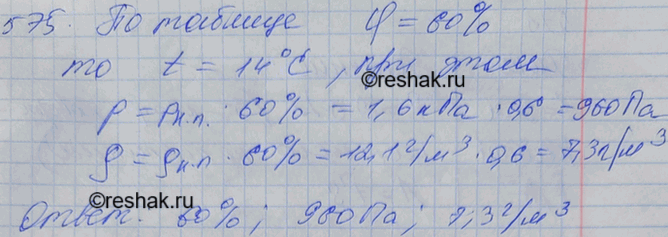 575. По таблице φ = 60%
то t = 14°C, при этом
©reshak.ru
p = pн.п. · 60% = 1,6 кПа · 0,6 = 960 Па
ρ = ρн.п. · 60% = 12,1 г/м³ · 0,6 = 7,3 г/м³
©reshak.ru
Ответ: 60%; 960 Па; 7,3 г/м³